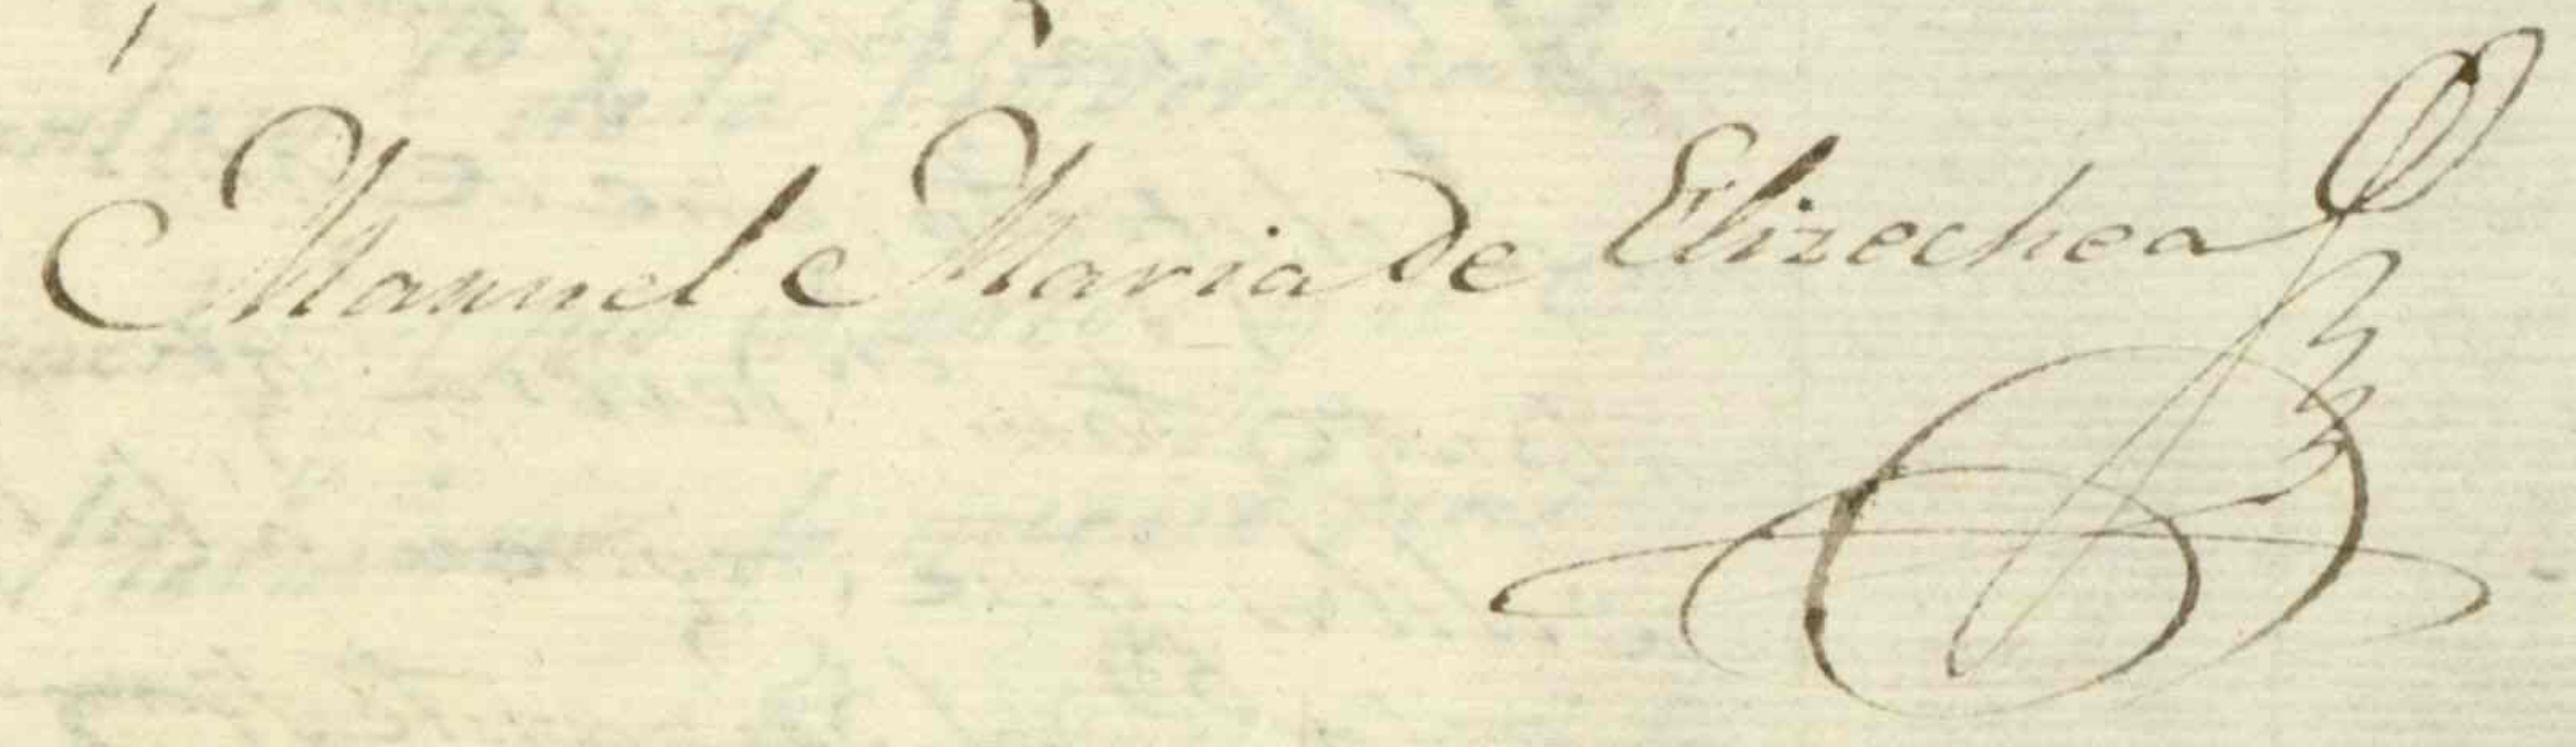 Manuel Maria de Elizechea